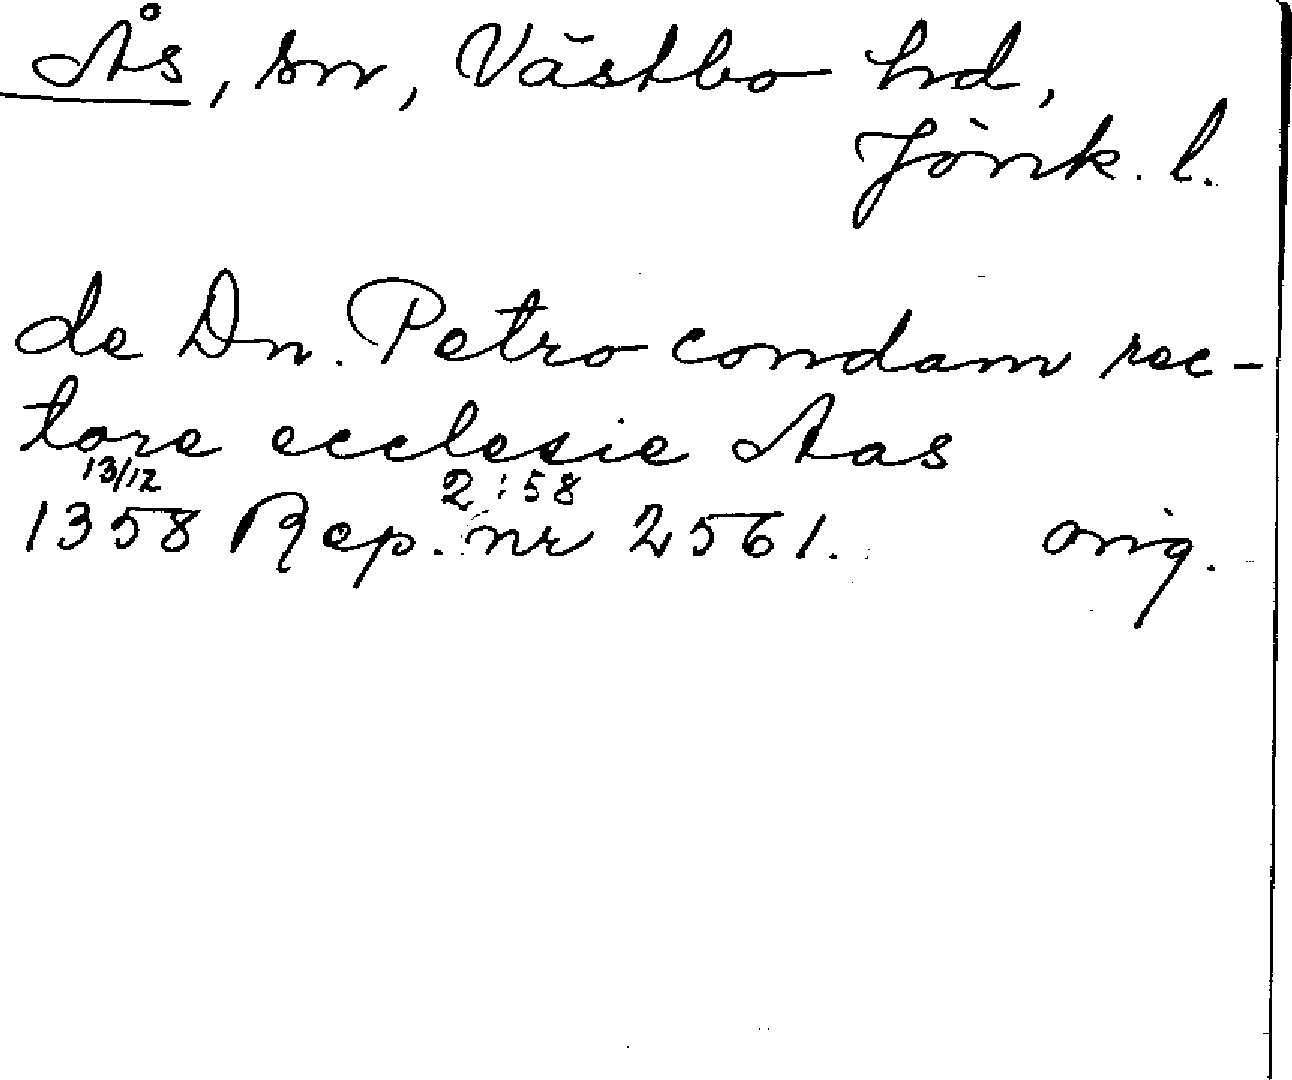 Ås, sn, Västbo hd,
Jönk. l.
de Dn. Petro condam rec-
tore ecclesie Aas
13/12 2:58
1358 Rep. nr 2561. orig.